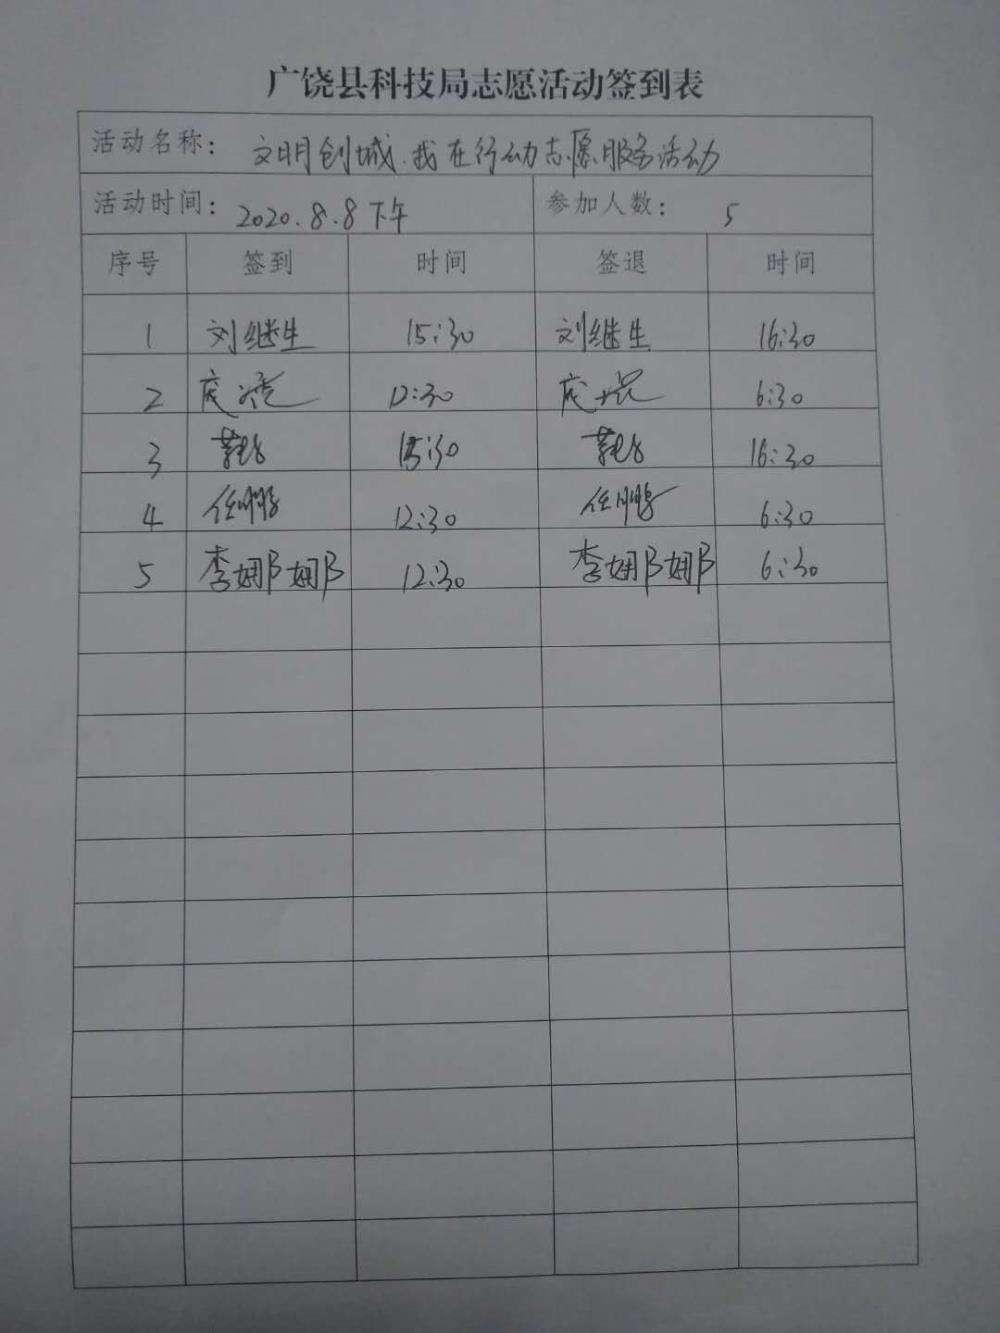 广饶县科技局志愿活动签到表
活动名称： 文明创城.我在行动志愿服务活动
活动时间： 2020.8.8下午 参加人数： 5
序号 签到 时间 签退 时间
1 刘继生 15:30 刘继生 16:30
2 12:30 6:30
3 15:30 16:30
4 任鹏 12:30 任鹏 6:30
5 李娜娜 12:30 李娜娜 6:30